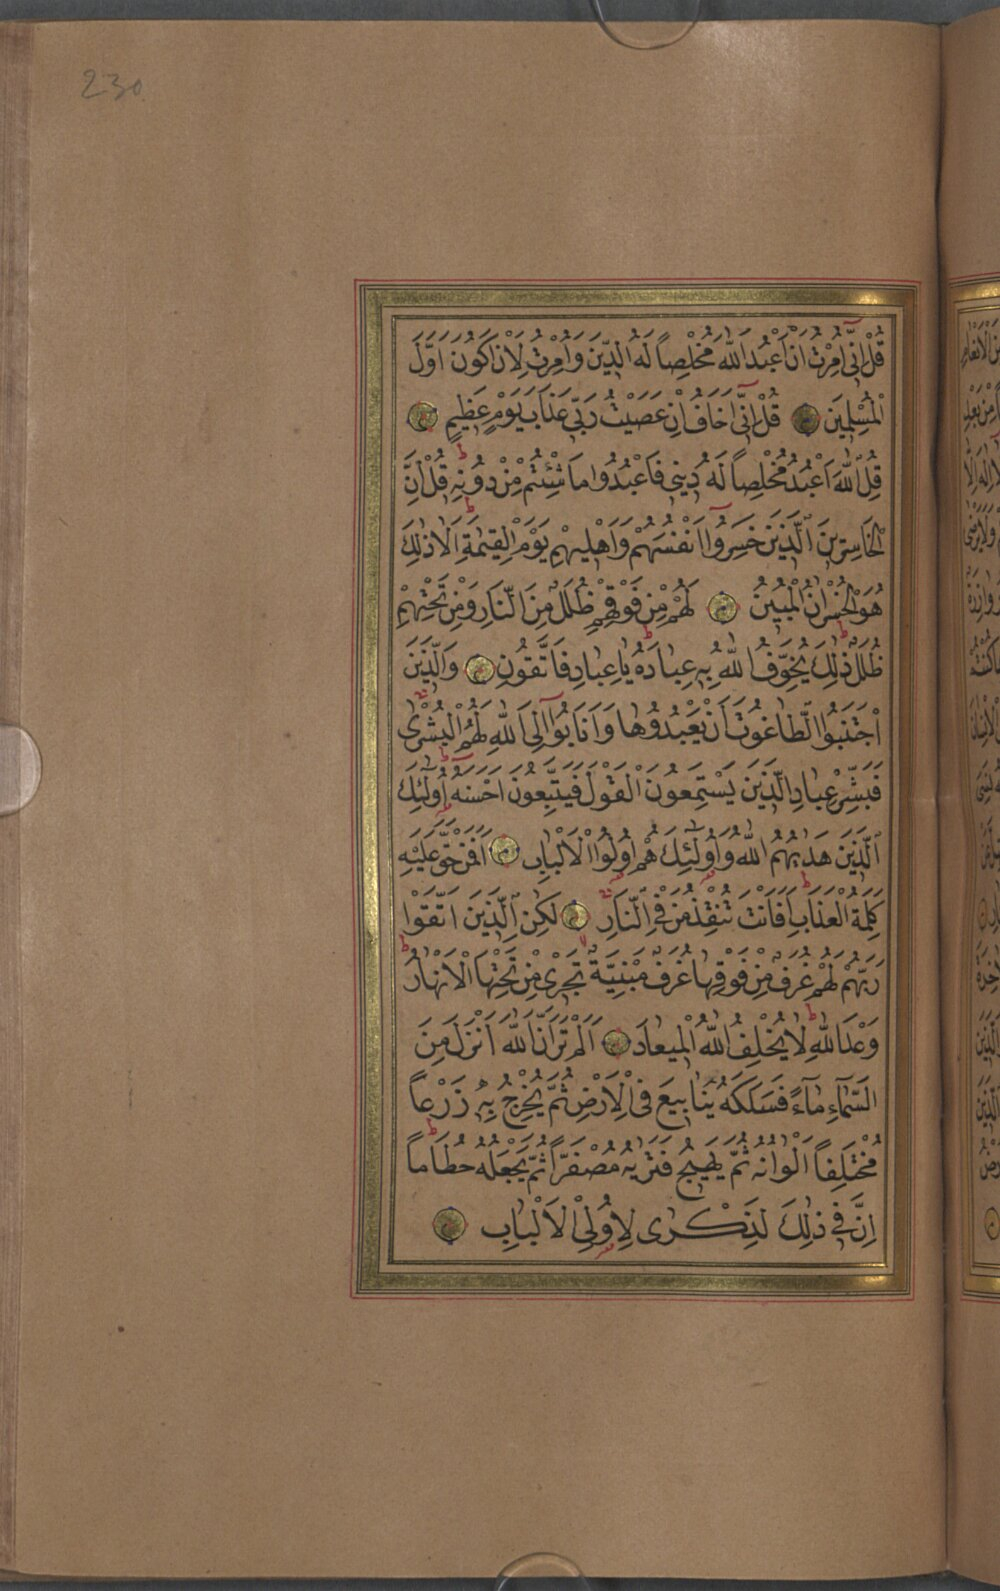 230
قُلْ اِنّٓى اُمِرْتُ اَنْ اَعْبُدَ اللّٰهَ مُخْلِصاً لَهُ الدّ۪ينَ وَاُمِرْتُ لِاَنْ اَكُونَ اَوَّلَ
الْمُسْلِم۪ينَ قُلْ اِنّٓى اَخَافُ اِنْ عَصَيْتُ رَبّ۪ى عَذَابَ يَوْمٍ عَظ۪يمٍ
قُلِ اللّٰهَ اَعْبُدُ مُخْلِصاً لَهُ د۪ينى فَاعْبُدُوا مَا شِئْتُمْ مِنْ دُونِه۪ قُلْ اِنَّ
الْخَاسِر۪ينَ الَّذ۪ينَ خَسِرُٓوا اَنْفُسَهُمْ وَاَهْل۪يهِمْ يَوْمَ الْقِيٰمَةِ اَلَا ذٰلِكَ
هُوَ الْخُسْرَانُ الْمُب۪ينُ لَهُمْ مِنْ فَوْقِهِمْ ظُلَلٌ مِنَ النَّارِ وَمِنْ تَحْتِهِمْ
ظُلَلٌ ذٰلِكَ يُخَوِّفُ اللّٰهُ بِه۪ عِبَادَهُ يَا عِبَادِ فَاتَّقُونِ وَالَّذ۪ينَ
اجْتَنَبُوا الطَّاغُوتَ اَنْ يَعْبُدُوهَا وَاَنَابُٓوا اِلَى اللّٰهِ لَهُمُ الْبُشْرٰى
فَبَشِّرْ عِبَادِ الَّذ۪ينَ يَسْتَمِعُونَ الْقَوْلَ فَيَتَّبِعُونَ اَحْسَنَهُ اُولٰٓئِكَ
الَّذ۪ينَ هَدٰيهُمُ اللّٰهُ وَاُولٰٓئِكَ هُمْ اُولُوا الْاَلْبَابِ اَفَمَنْ حَقَّ عَلَيْهِ
كَلِمَةُ الْعَذَابِ اَفَاَنْتَ تُنْقِذُ مَنْ فِى النَّارِ لٰكِنِ الَّذ۪ينَ اتَّقَوْا
رَبَّهُمْ لَهُمْ غُرَفٌ مِنْ فَوْقِهَا غُرَفٌ مَبْنِيَّةٌ تَجْر۪ى مِنْ تَحْتِهَا الْاَنْهَارُ
وَعْدَ اللّٰهِ لَا يُخْلِفُ اللّٰهُ الْم۪يعَادَ اَلَمْ تَرَ اَنَّ اللّٰهَ اَنْزَلَ مِنَ
السَّمَٓاءِ مَٓاءً فَسَلَكَهُ يَنَاب۪يعَ فِى الْاَرْضِ ثُمَّ يُخْرِجُ بِه۪ زَرْعاً
مُخْتَلِفاً اَلْوَانُهُ ثُمَّ يَه۪يجُ فَتَرٰيهُ مُصْفَرًّا ثُمَّ يَجْعَلُهُ حُطَاماً
اِنَّ ف۪ى ذٰلِكَ لَذِكْرٰى لِاُولِى الْاَلْبَابِ